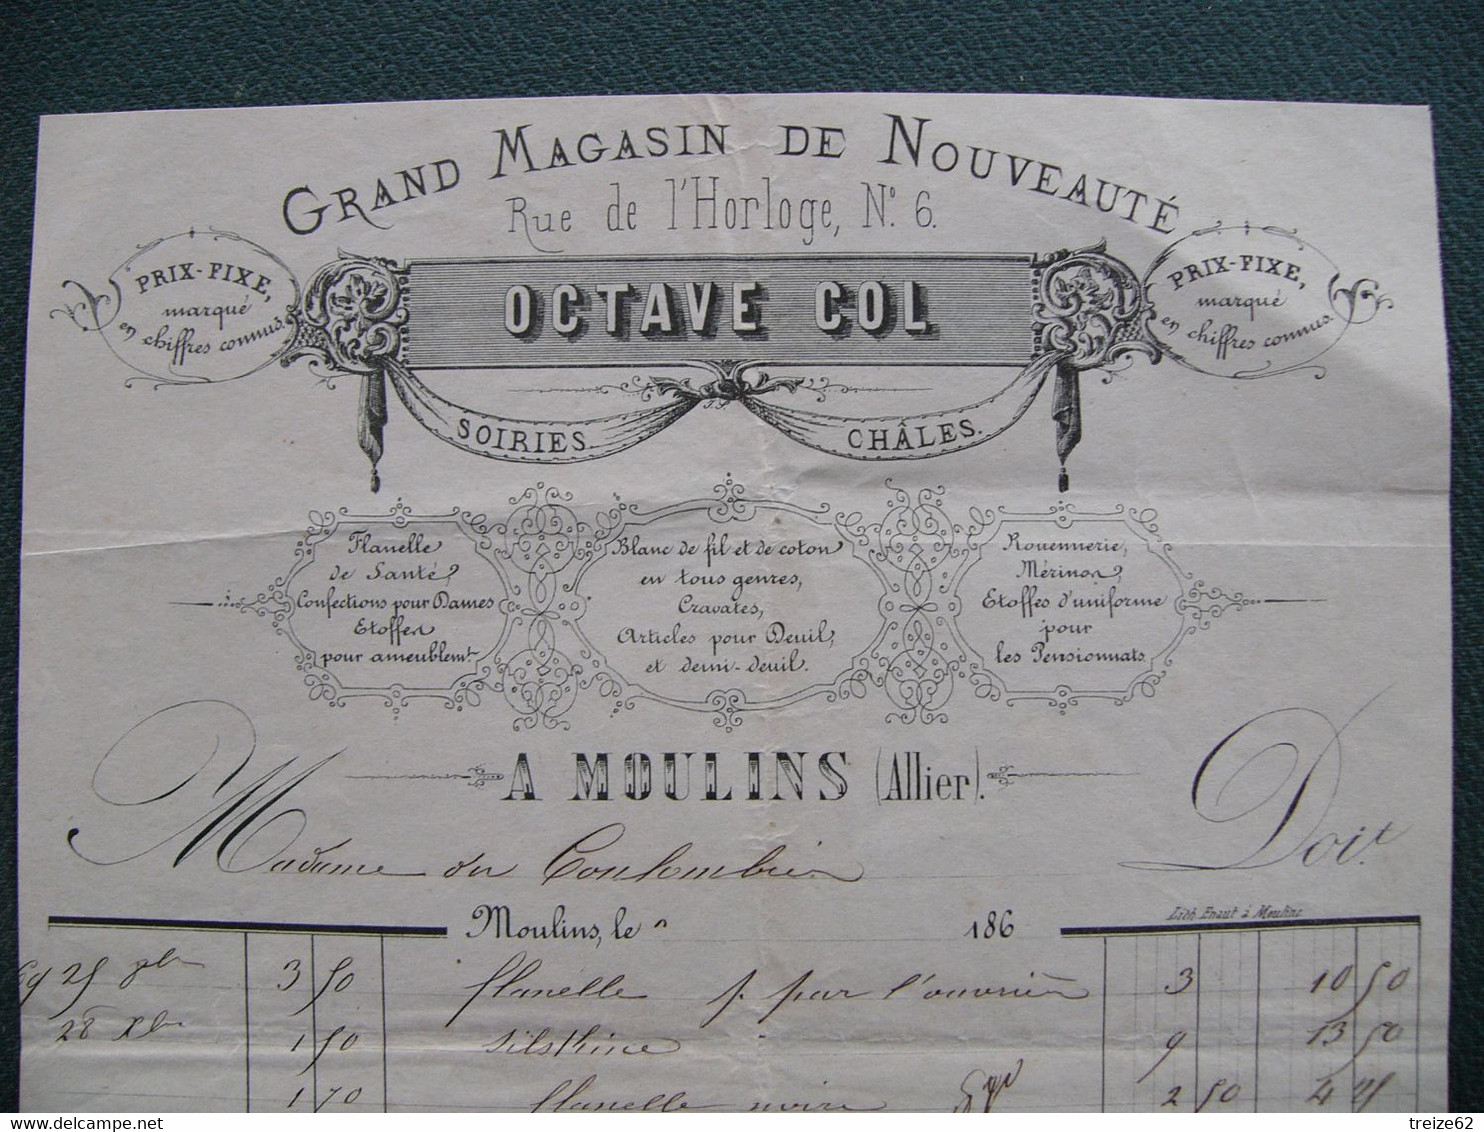 GRAND MAGASIN DE NOUVEAUTÉ
Rue de l'Horloge, N° 6.
PRIX-FIXE,
marqué
en chiffres connus.
OCTAVE COL
PRIX-FIXE,
marqué
en chiffres connus.
SOIRIES.
CHÂLES.
Flanelle
de Santé,
Confections pour Dames
Etoffes
pour ameublemt.
Blanc de fil et de coton
en tous genres,
Cravates,
Articles pour Deuil,
et demi-deuil.
Rouennerie,
Mérinos,
Etoffes d'uniforme
pour
les Pensionnats.
A MOULINS (Allier).
Madame du Coulombier
Doit.
Lith. Enaut à Moulins
Moulins, le 186
69 25 7bre 3 50 flanelle p. par l'ouvrière 3 10 50
28 Xbre 1 50 9 13 50
1 70 flanelle noire 2 50 4 25
treize62